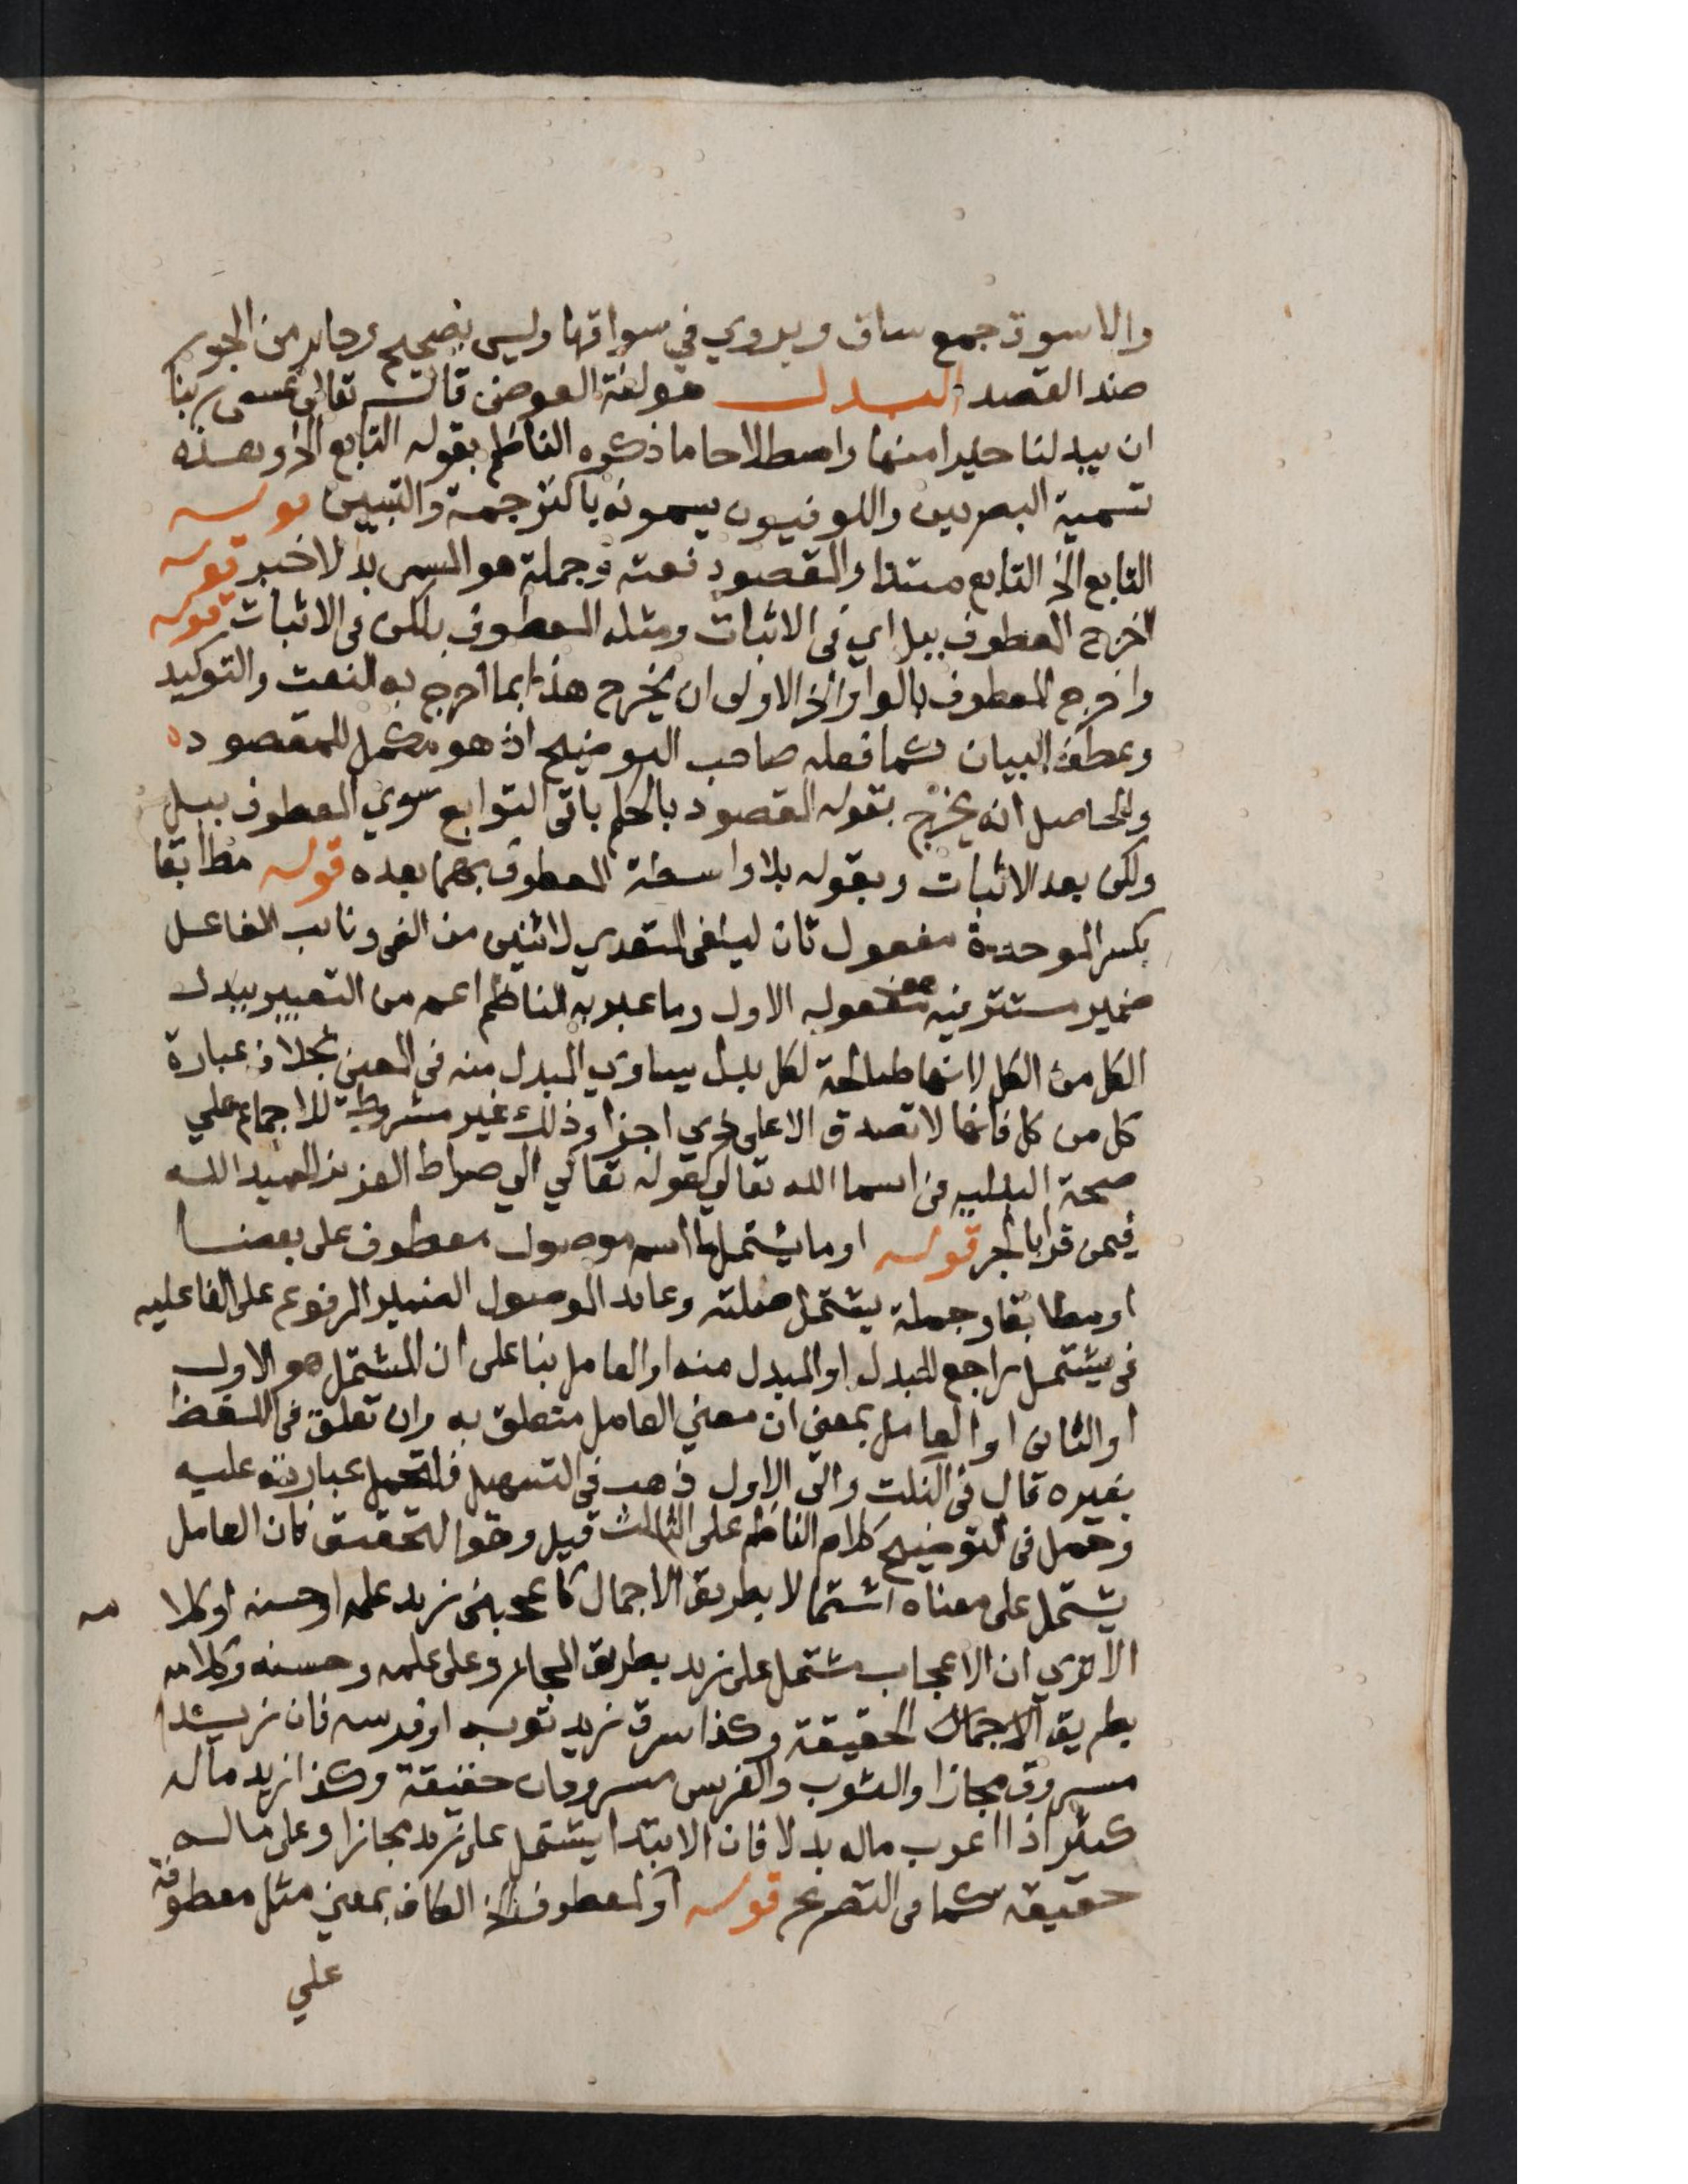 والاسوق جمع ساق ويروي في سواقها وليس بصحيح وجاير من الجور
ضد القصد البدل هو لغة العوض قال تعالى عسى ربنا
ان يبدلنا خيرا منها واصطلاحا ما ذكره الناظم بقوله التابع الخ وهذه
تسمية البصريين والكوفيون يسمونه بالترجمة والتبيين قوله
التابع الخ التابع مبتدا والمقصود نعته وجملة هو المسمى بدلا خبر قوله
اخرج المعطوف ببل اي في الاثبات ومثله المعطوف بلكن في الاثبات قوله
واخرج المعطوف بالواو الخ الاولى ان يخرج هذا بما اخرج به النعت والتوكيد
وعطف البيان كما فعله صاحب التوضيح اذ هو مكمل للمقصود
والحاصل انه يخرج بقوله المقصود بالحكم باقي التوابع سوي المعطوف ببل
ولكن بعد الاثبات وبقوله بلا واسطة المعطوف بهما بعده قوله مطابقا
بكسر الموحدة مفعول ثان ليلفى المتعدي لاثنين من الفى ونايب الفاعل
ضمير مستتر فيه مفعوله الاول وما عبر به الناظم اعم من التعبير ببدل
الكل من الكل لانها صالحة لكل بدل يساوي المبدل منه في المعنى بخلاف عبارة
كل من كل فانها لا تصدق الا على ذي اجزا وذلك غير مشروط للاجماع علي
صحة البدلية في اسما الله تعالى كقوله تعالي الي صراط العزيز الحميد الله
فيمن قرا بالجر قوله او ما يشتمل ما اسم موصول معطوف على بعضا
او مطابقا وجملة يشتمل صلته وعايد الموصول الضمير المرفوع على الفاعليه
في يشتمل راجع للبدل او المبدل منه او العامل بنا على ان المشتمل هو الاول
او الثاني او العامل بمعني ان معني العامل متعلق به وان تعلق في اللفظ
بغيره قال في النكت والى الاول ذهب في التسهيل فلتحمل عبارته عليه
وحمل في التوضيح كلام الناظم على الثالث قيل وهو التحقيق فان العامل
يشتمل على معناه اشتمالا بطريق الاجمال كاعجبني زيد علمه او حسنه او كلا مه
الا تري ان الاعجاب مشتمل على زيد بطريق المجاز وعلى علمه وحسنه وكلامه
بطريق الاجمال الحقيقة وكذا سرق زيد ثوبه او فرسه فان زيدا
مسروق مجازا والثوب والفرس مسروقان حقيقة وكذا زيد ماله
كثير اذا اعرب ماله بدلا فان الابتدا يشتمل على زيد مجازا وعلى ماله
حقيقة كما في التصريح قوله او كمعطوف الخ الكاف بمعني مثل معطوفة
علي